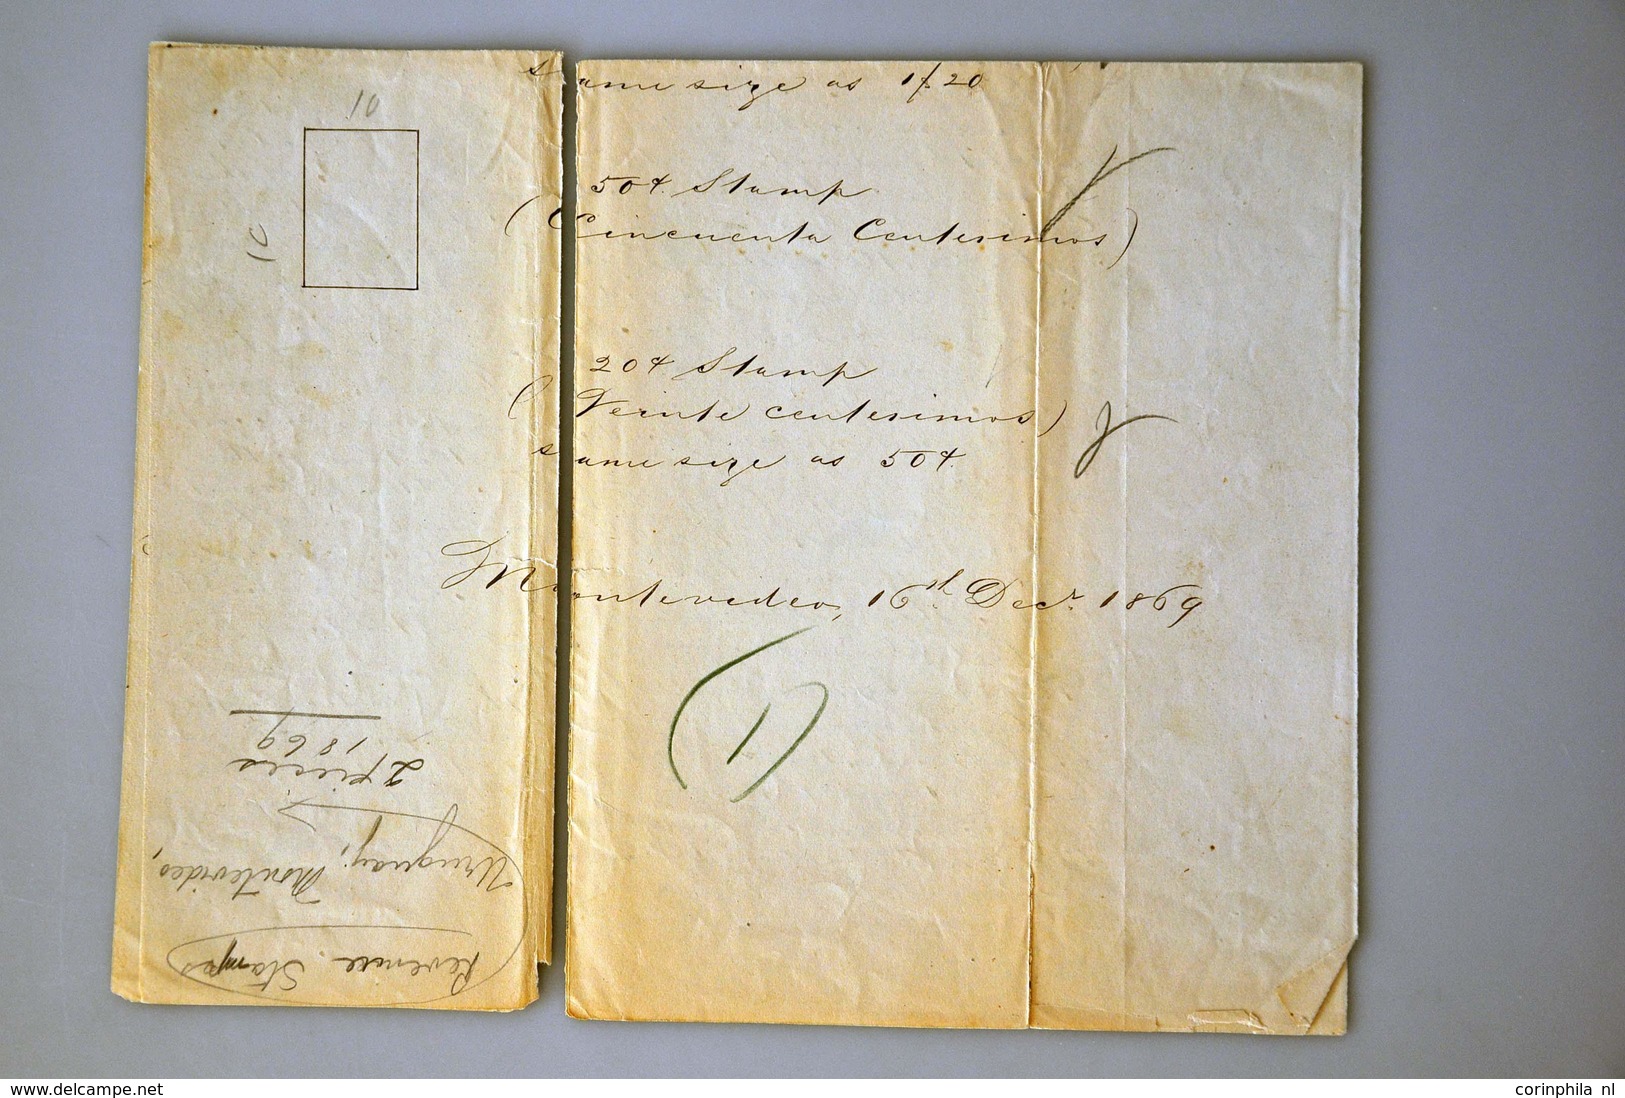 same size as 1/20
10
10
50¢ Stamp
(Cincuenta Centesimos)
20¢ Stamp
(Veinte centesimos)
same size as 50¢
Montevideo, 16th Decr 1869
1
Revenue Stamps
Uruguay, Montevideo,
2 pieces
1869
www.delcampe.net
corinphila nl